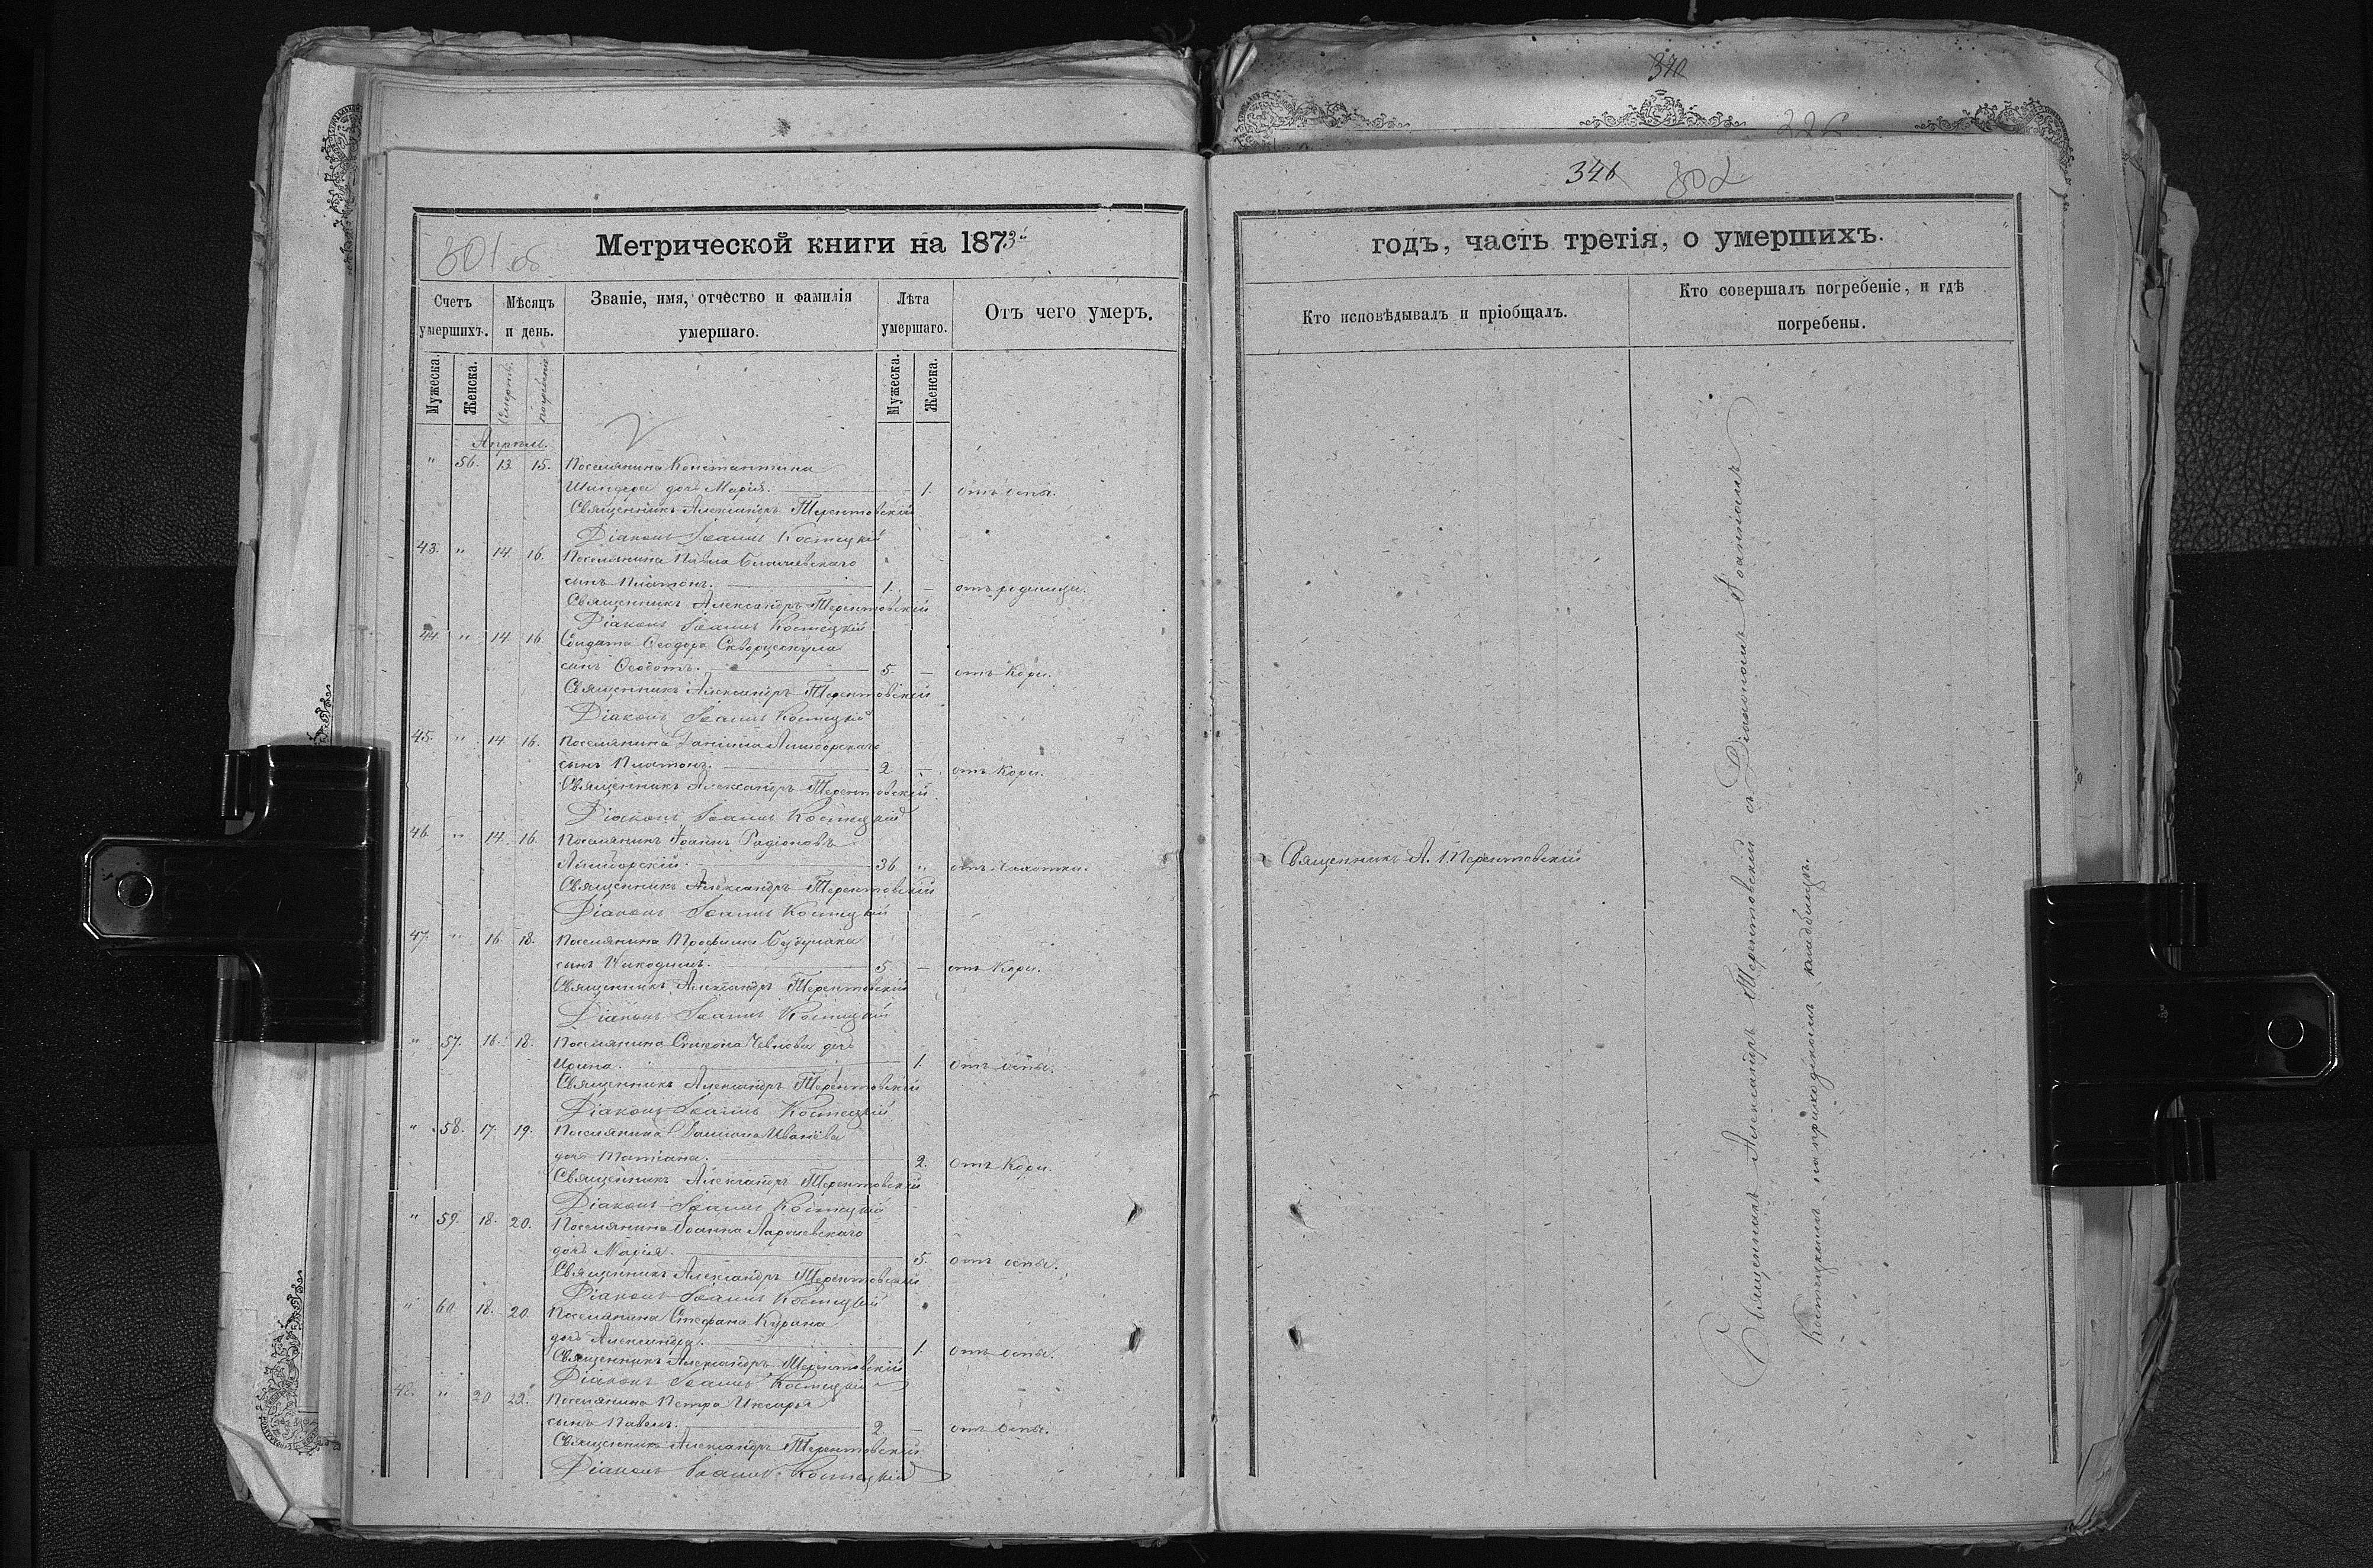 340
226
346 302
301 об
Метрической книги на 1873й
годъ, часть третія, о умершихъ.
Счетъ умершихъ.
Мѣсяцъ и день.
Званіе, имя, отчество и фамилія умершаго.
Лѣта умершаго.
Отъ чего умеръ.
Кто исповѣдывалъ и пріобщалъ.
Кто совершалъ погребеніе, и гдѣ погребены.
Мужеска. Женска. смерти. погребенія Мужеска. Женска.
Апрѣль.
" 56. 13 15. Поселянина Константина
дочь Марія. 1. отъ оспы.
Священникъ Александръ Терентовскій
Діаконъ Іоаннъ Костецкій
43. " 14. 16. Поселянина Павла
сынъ Платонъ. 1. — отъ родимца.
Священникъ Александръ Терентовскій
Діаконъ Іоаннъ Костецкій
44. " 14 16. Солдата Ѳеодора
сынъ Ѳеодотъ. 5. — отъ Кори.
Священникъ Александръ Терентовскій
Діаконъ Іоаннъ Костецкій
45. " 14 16. Поселянина Даніила
сынъ Платонъ. 2 — отъ Кори.
Священникъ Александръ Терентовскій
Діаконъ Іоаннъ Костецкій
46. " 14. 16. Поселянинъ Іоаннъ Радіоновъ
36 " отъ чахотки. Священникъ А. Терентовскій
Священникъ Александръ Терентовскій
Діаконъ Іоаннъ Костецкій
47. " 16. 18. Поселянина
сынъ Никодимъ. 5. — отъ Кори.
Священникъ Александръ Терентовскій
Діаконъ Іоаннъ Костецкій
" 57. 16. 18. Поселянина Симеона дочь
Ирина. 1. отъ оспы.
Священникъ Александръ Терентовскій
Діаконъ Іоаннъ Костецкій
" 58. 17. 19. Поселянина
дочь Татіана. 2. отъ Кори.
Священникъ Александръ Терентовскій
Діаконъ Іоаннъ Костецкій
" 59. 18. 20. Поселянина Іоанна
дочь Марія. 5. отъ оспы.
Священникъ Александръ Терентовскій
Діаконъ Іоаннъ Костецкій
" 60. 18. 20. Поселянина Стефана Курина
дочь Александра. 1. отъ оспы.
Священникъ Александръ Терентовскій
Діаконъ Іоаннъ Костецкій
48. " 20 22. Поселянина Петра
сынъ Павелъ. 2 — отъ оспы.
Священникъ Александръ Терентовскій
Діаконъ Іоаннъ Костецкій
Священникъ Александръ Терентовскій съ Діакономъ Іоанномъ
Костецкимъ на приходскомъ кладбищѣ.